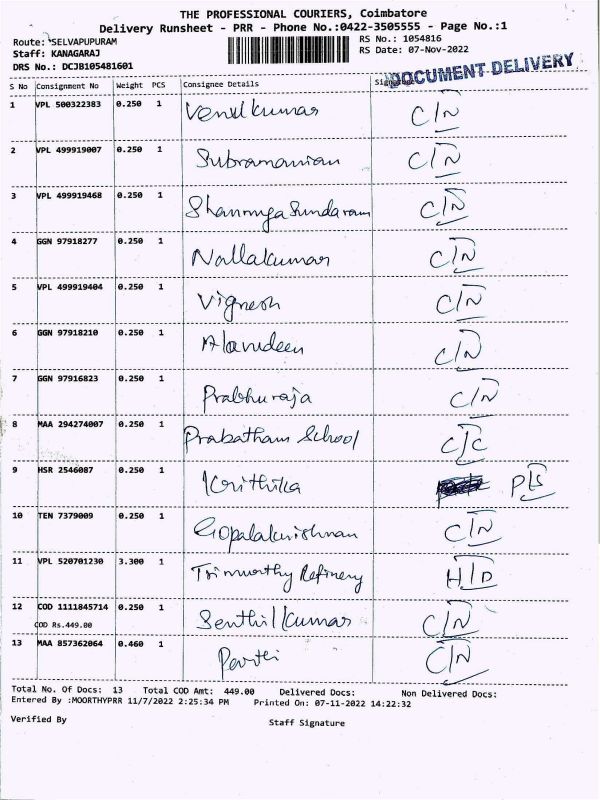 THE PROFESSIONAL COURIERS, Coimbatore
Delivery Runsheet - PRR - Phone No.:0422-3505555 - Page No.:1
Route: *SELVAPUPURAM RS No.: 1054816
Staff: KANAGARAJ RS Date: 07-Nov-2022
DRS No.: DCJB105481601 DOCUMENT DELIVERY
S No Consignment No Weight PCS Consignee Details Signature
1 VPL 500322383 0.250 1 Venilkumar C/N
2 VPL 499919007 0.250 1 Subramanian C/N
3 VPL 499919468 0.250 1 Shanmugasundaram C/N
4 GGN 97918277 0.250 1 Nallakumar C/N
5 VPL 499919404 0.250 1 Vignesh C/N
6 GGN 97918210 0.250 1 Alavudeen C/N
7 GGN 97916823 0.250 1 Prabhuraja C/N
8 MAA 294274007 0.250 1 Prabatham School C/C
9 HSR 2546087 0.250 1 Krithika
10 TEN 7379009 0.250 1 Gopalakrishnan C/N
11 VPL 520701230 3.300 1 Trimurthy Refinery H/D
12 COD 1111845714 0.250 1 Senthilkumar C/N
COD Rs.449.00
13 MAA 857362064 0.460 1 C/N
Total No. Of Docs: 13 Total COD Amt: 449.00 Delivered Docs: Non Delivered Docs:
Entered By :MOORTHYPRR 11/7/2022 2:25:34 PM Printed On: 07-11-2022 14:22:32
Verified By Staff Signature